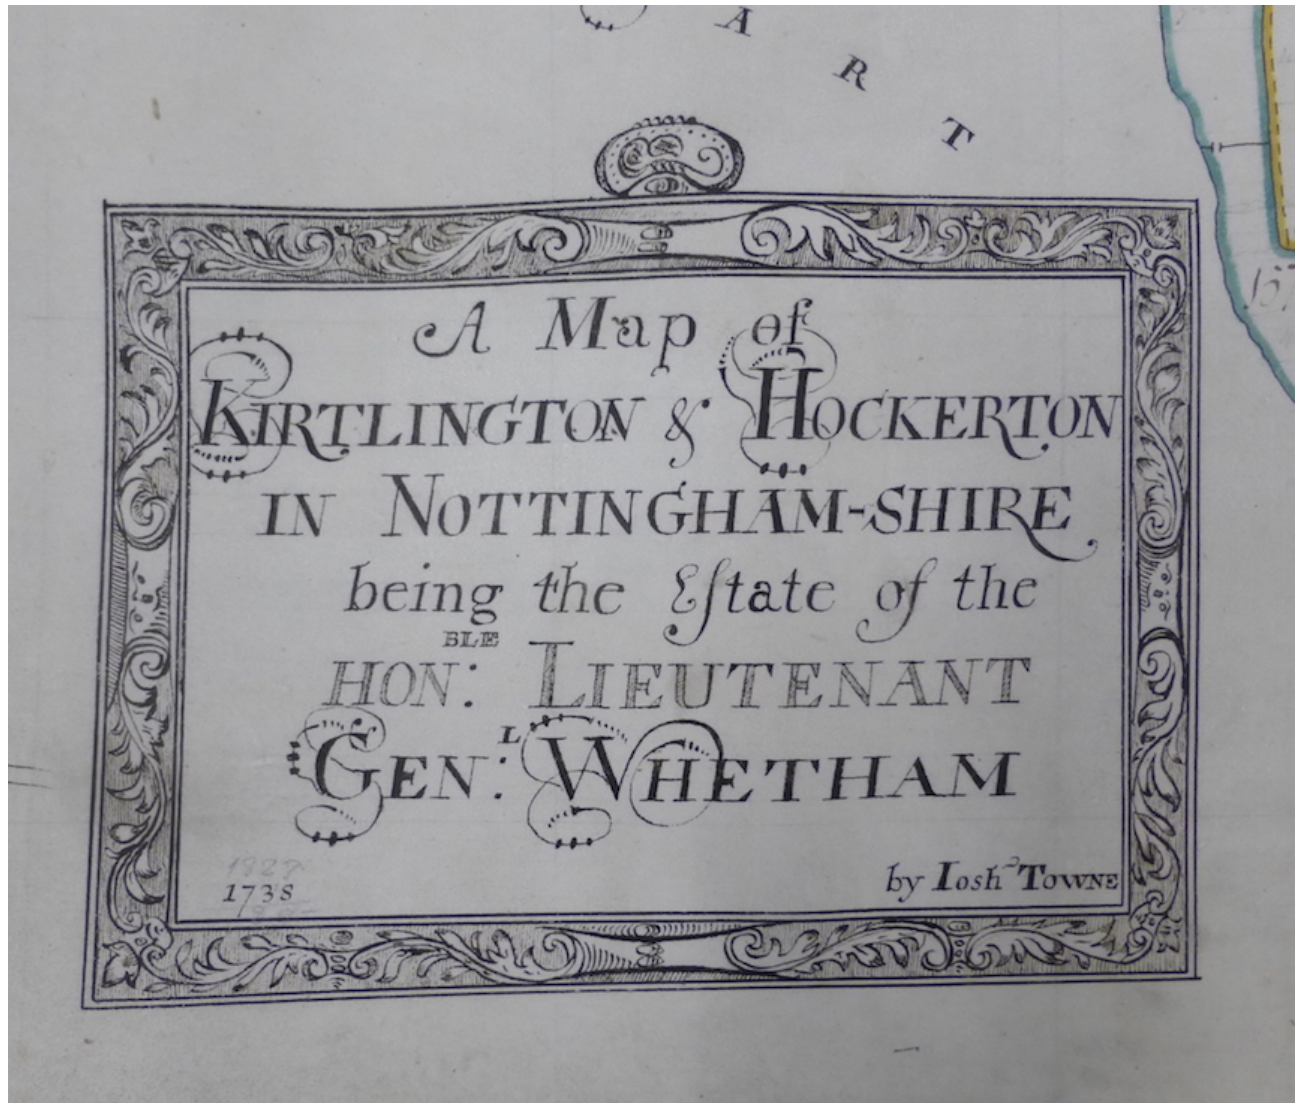 A
R
T
A Map of
KIRTLINGTON & HOCKERTON
IN NOTTINGHAM-SHIRE
being the Eſtate of the
HON:BLE LIEUTENANT
GEN:L WHETHAM
1738
by Iosha TOWNE